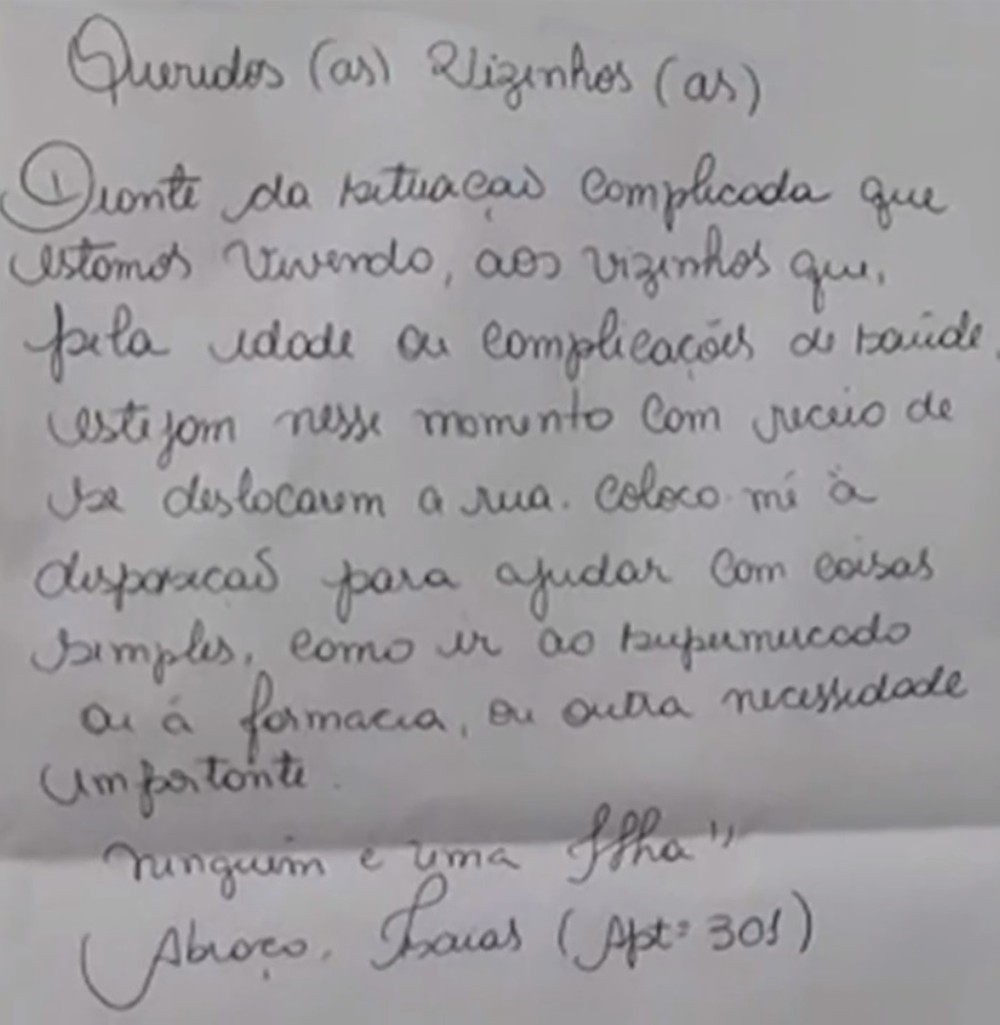 Queridos (as) Vizinhos (as)
Diante da situação complicada que
estamos vivendo, aos vizinhos que,
pela idade ou complicações de saúde,
estejam nesse momento com receio de
se deslocarem a rua. Coloco-me à
disposição para ajudar com coisas
simples, como ir ao supermercado
ou à farmacia, ou outra necessidade
importante.
Ninguém e uma Ilha"
Abraço, Isaias (Apt: 301)